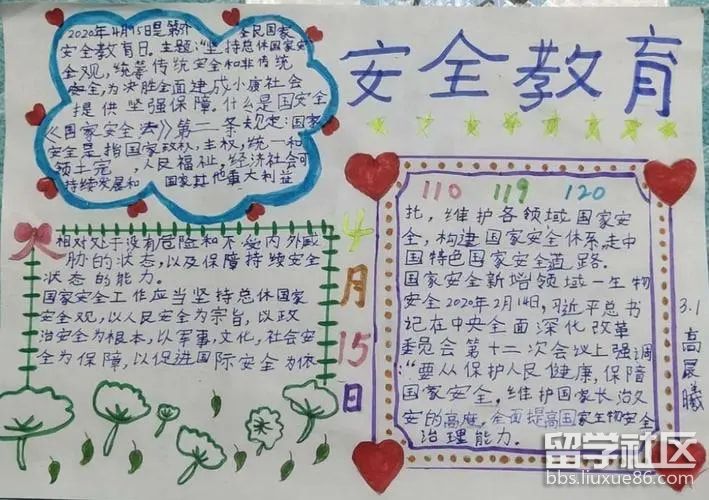 安全教育
2020年4月15日是第 全民国家
安全教育日。主题："坚持总体国家安
全观，统筹传统安全和非传统
安全，为决胜全面建成小康社会
提供坚强保障。什么是国安全
《国家安全法》第二条规定：国家
安全是指国家政权，主权，统一和
领土完 ，人民福祉，经济社会可
持续发展和 国家其他重大利益
相对处于没有危险和不受内外威
胁的状态，以及保障持续安全
状态的能力。
国家安全工作应当坚持总体国家
安全观，以人民安全为宗旨，以政
治安全为根本，以军事，文化，社会安
全为保障，以促进国际安全为依
4月15日
110 119 120
托，维护各领域国家安
全，构建国家安全体系，走中
国特色国家安全道路。
国家安全新增领域一生物
安全2020年2月14日，习近平总书
记在中央全面深化改革
委员会第十二次会议上强调
："要从保护人民健康，保障
国家安全，维护国家长治久
安的高度，全面提高国家生物安全
治理能力。
3.1
高晨曦
留学社区
bbs.liuxue86.com